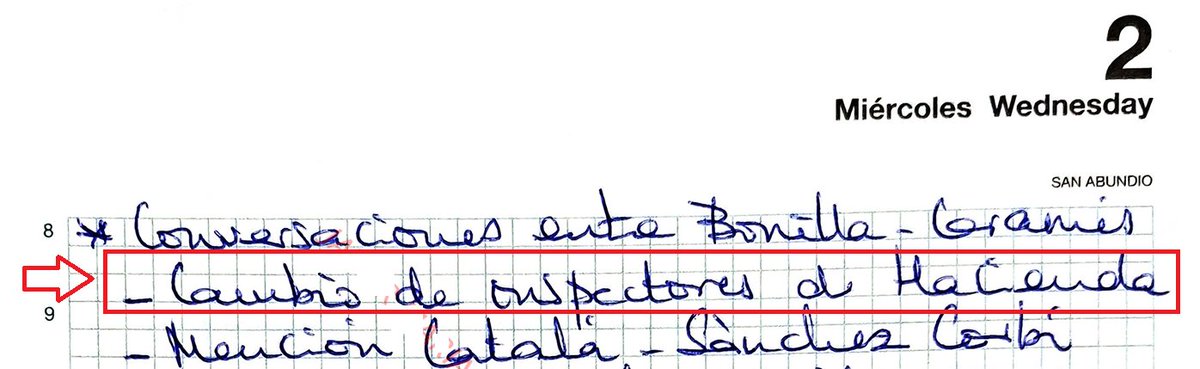 2
Miércoles Wednesday
SAN ABUNDIO
8 * Conversaciones entre Bonilla - Geramis
- Cambio de inspectores de Hacienda
9
- Mención Catalá - Sánchez Corbí